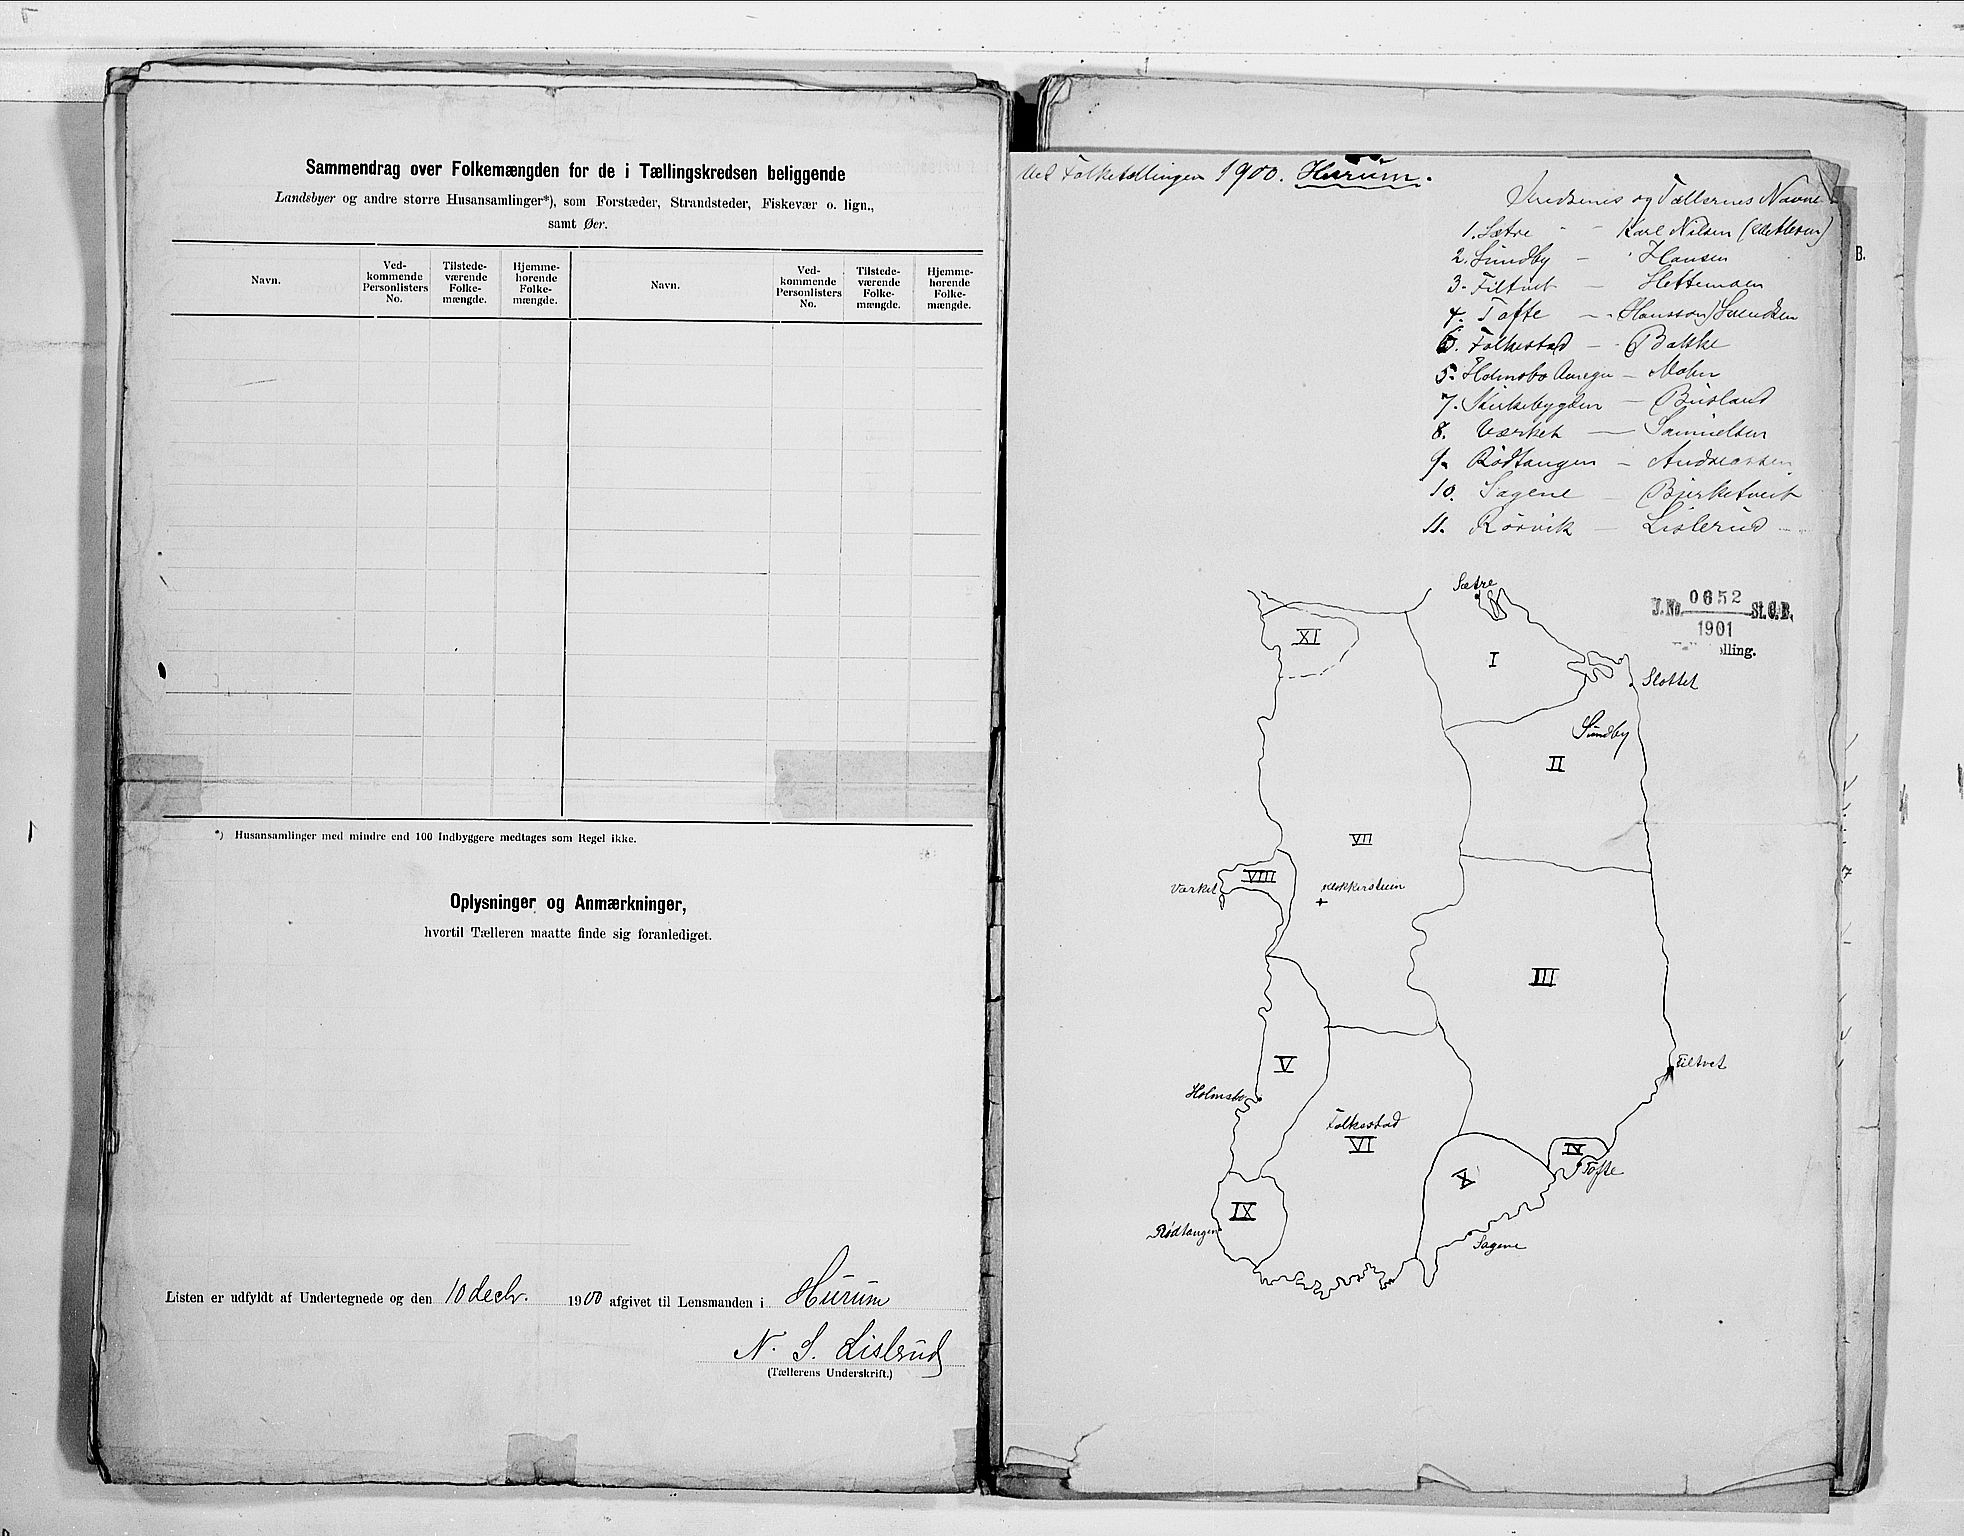 Sammendrag over Folkemængden for de i Tællingskredsen beliggende
Landsbyer og andre større Husansamlinger*), som Forstæder, Strandsteder, Fiskevær o. lign.,
samt Øer.
Navn.
Ved-
kommende
Personlisters
No.
Tilstede-
værende
Folke-
mængde.
Hjemme-
hørende
Folke-
mængde.
Navn.
Ved-
kommende
Personlisters
No.
Tilstede-
værende
Folke-
mængde.
Hjemme-
hørende
Folke-
mængde.
*) Husansamlinger med mindre end 100 Indbyggere medtages som Regel ikke.
Oplysninger og Anmærkninger,
hvortil Tælleren maatte finde sig foranlediget.
Listen er udfyldt af Undertegnede og den 10 decbr. 1900 afgivet til Lensmanden i Hurum
N. S. Lislerud
(Tællerens Underskrift.)
Ved Folketællingen 1900. Hurum.
Kredsenes og Tællernes Navne
1. Sætre - - Karl Nilsen
2. Sundby - Hansen
3. Filtvet - Hettemoen
4. Tofte - Hansson Svendsen
6. Folkestad - Bakke
5. Holmsbo - Moen
7. Kirkebygden - Busland
8. Værket - Samuelsen
9. Rödtangen - Andreassen
10. Sagene - Bjerketvedt
11. Rörvik - Lislerud -
J. No. 0652 St. C. B.
1901
lling.
B.
Sætre
XI
I
Slottet
Sundby
II
VII
Værket
VIII
Klokkersteen
III
V
Filtvet
Holmsbo
Folkestad
VI
IV
Tofte
X
IX
Rödtangen
Sagene